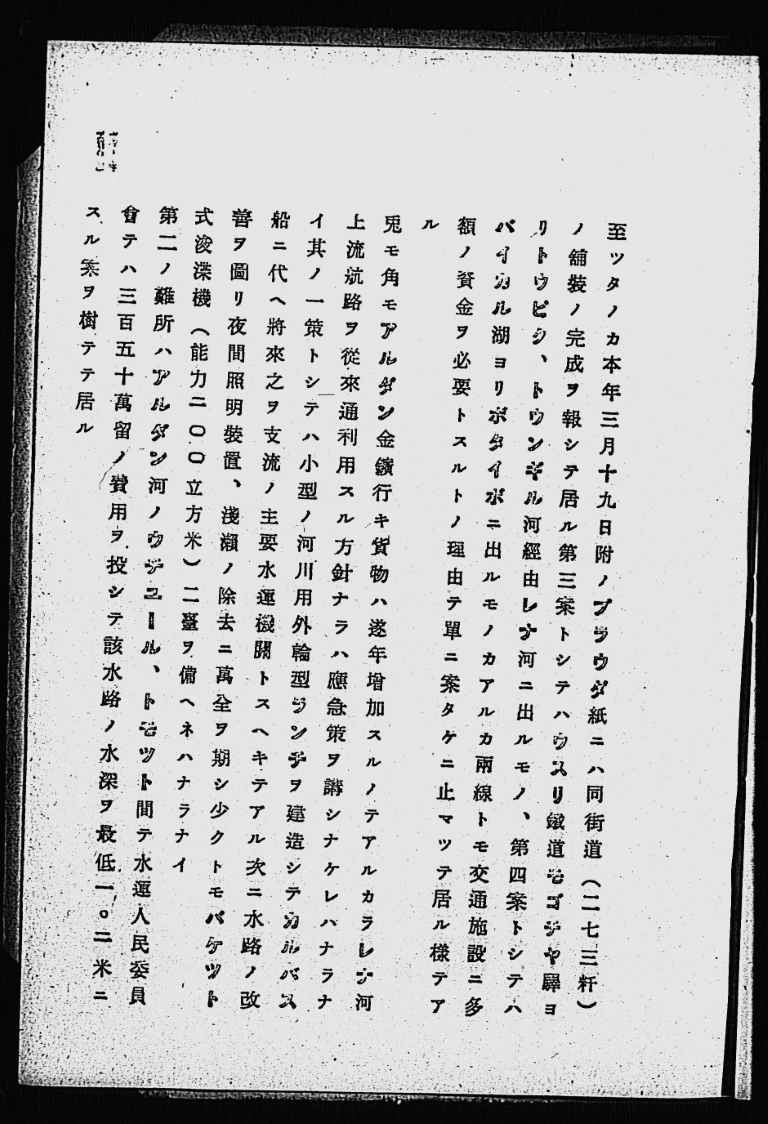 至ツタノカ本年三月十九日附ノプラウダ紙ニハ同街道(二七三粁)
ノ舖裝ノ完成ヲ報シテ居ル第三案トシテハウスリ鐵道モゴチヤ驛ヨ
リトウピシ、トウンギル河經由レナ河ニ出ルモノ、第四案トシテハ
バイカル湖ヨリボダイボニ出ルモノカアルカ兩線トモ交通施設ニ多
額ノ資金ヲ必要トスルトノ理由テ單ニ案タケニ止マツテ居ル樣テア
ル
兎モ角モアルダン金鑛行キ貨物ハ逐年增加スルノテアルカラレナ河
上流航路ヲ從來通利用スル方針ナラハ應急策ヲ講シナケレハナラナ
イ其ノ一策トシテハ小型ノ河川用外輪型ランチヲ建造シテカルバス
船ニ代ヘ將來之ヲ支流ノ主要水運機關トスヘキテアル次ニ水路ノ改
善ヲ圖リ夜間照明裝置、淺瀨ノ除去ニ萬全ヲ期シ少クトモバケツト
式浚渫機(能力二〇〇立方米)二臺ヲ備ヘネハナラナイ
第二ノ難所ハアルダン河ノウチユール、トモツト間テ水運人民委員
會テハ三百五十萬留ノ費用ヲ投シテ該水路ノ水深ヲ最低一。二米ニ
スル案ヲ樹テテ居ル